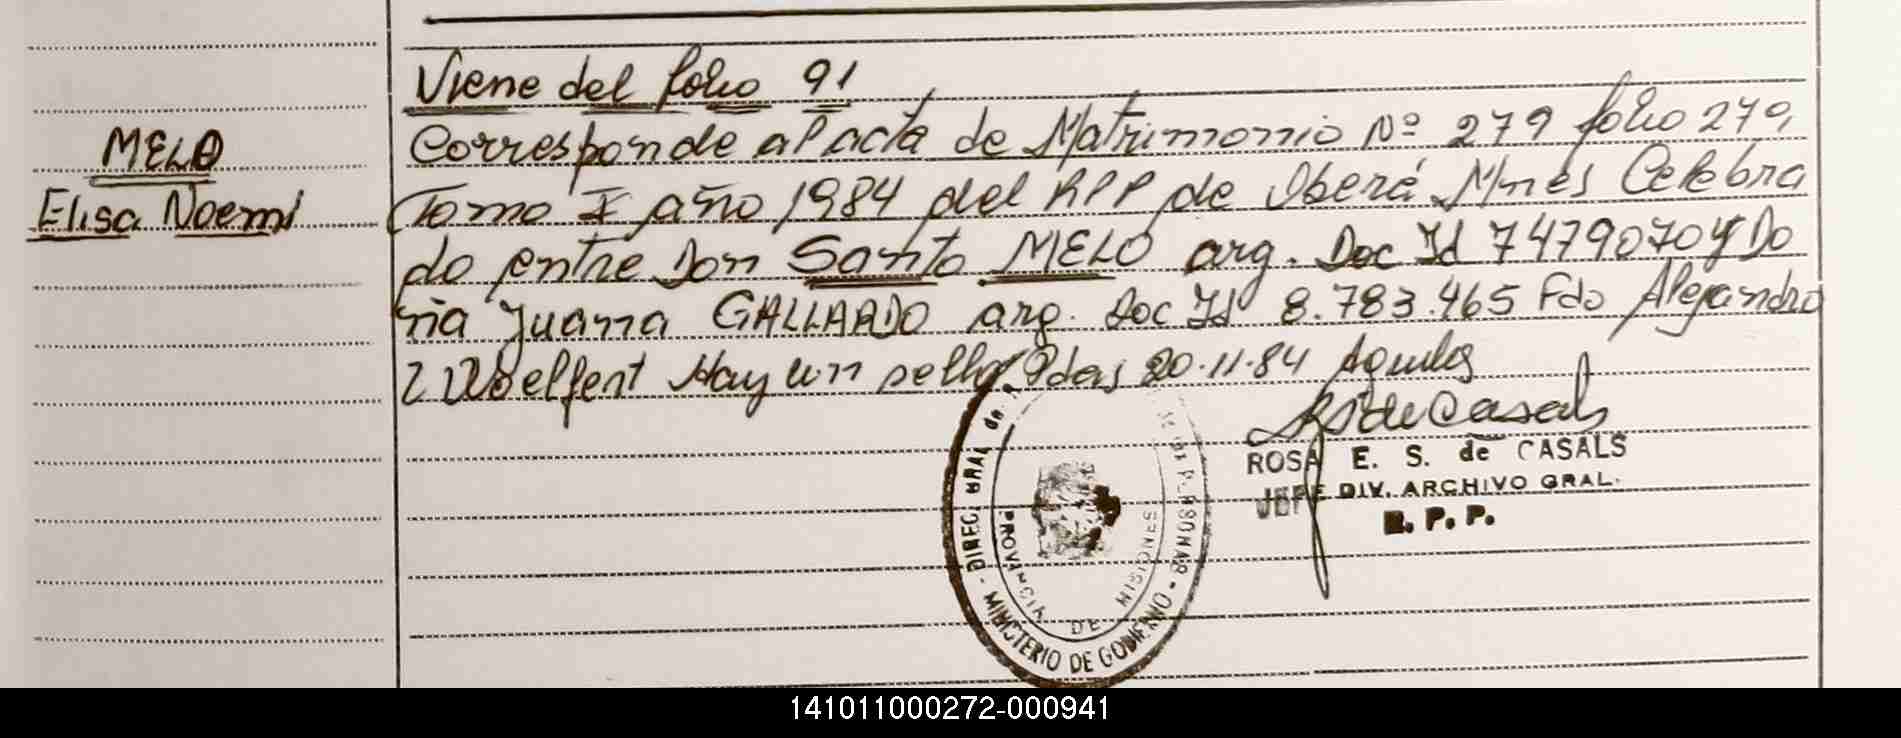 Viene del folio 91
MELO
Elisa Noemi
Corresponde al acta de Matrimonio Nº 279 folio 279,
Tomo I año 1984 del RPP de Oberá Mnes Celebra
do entre Don Santo MELO arg. Doc Id 7479070 y Do
ña Juana GALLARDO arg. Doc Id 8.783.465 Fdo Alejandro
Woelfert Hay un sello Pdas 20.11.84
ROSA E. S. de CASALS
JEFE DIV. ARCHIVO GRAL.
R. P. P.
DIREC. GRAL de
PERSONAS
MINISTERIO DE GOBIERNO
PROVINCIA DE MISIONES
141011000272-000941